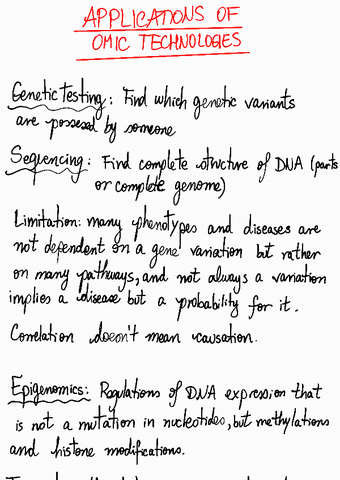 APPLICATIONS OF
OMIC TECHNOLOGIES
Genetic Testing: Find which genetic variants
are possesed by someone
Sequencing: Find complete structure of DNA (parts
or complete genome)
Limitation: many phenotypes and diseases are
not dependent on a gene variation but rather
on many pathways, and not always a variation
implies a disease but a probability for it.
Correlation doesn't mean causation.
Epigenomics: Regulations of DNA expression that
is not a mutation in nucleotides, but methylations
and histone modifications.